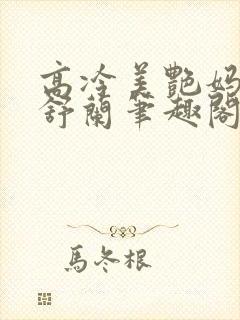 高冷美艷妈
舒蘭筆趣閣
馬冬根